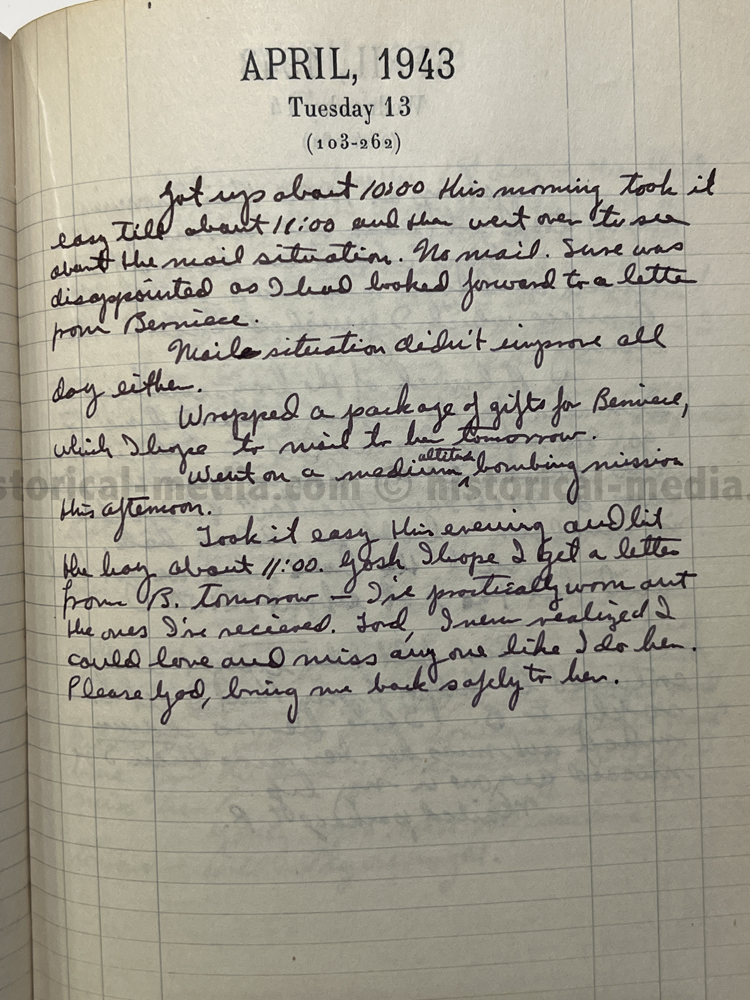 APRIL, 1943
Tuesday 13
(103-262)
Got up about 10:00 this morning took it
easy till about 11:00 and then went over to see
about the mail situation. No mail. Sure was
disappointed as I had looked forward to a letter
from Berniece.
Maile situation didn't improve all
day either.
Wrapped a package of gifts for Berniece,
which I hope to mail to her tomorrow.
Went on a medium altitude bombing mission
this afternoon.
Took it easy this evening and hit
the hay about 11:00. Gosh I hope I get a letter
from B. tomorrow – I've practically worn out
the ones I've recieved. Lord, I never realized I
could love and miss anyone like I do her.
Please God, bring me back safely to her.
historical-media.com © historical-media.